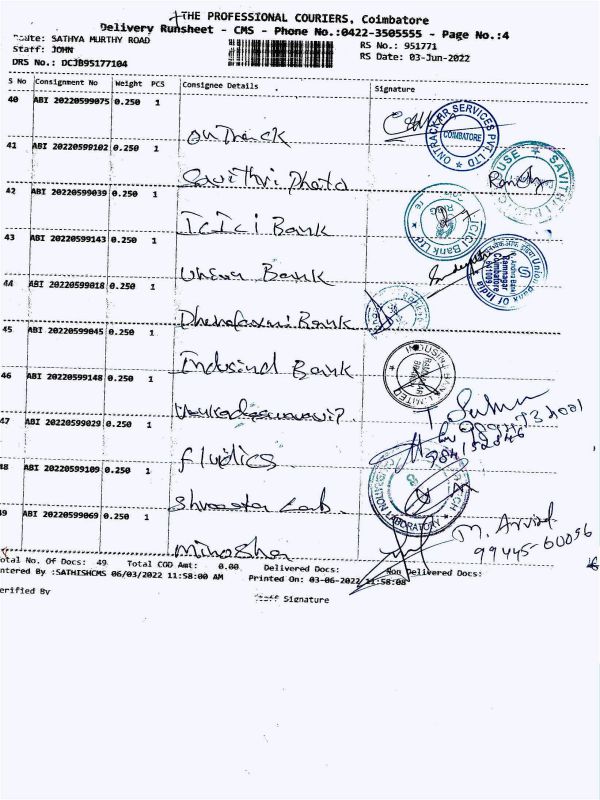 THE PROFESSIONAL COURIERS, Coimbatore
Delivery Runsheet - CMS - Phone No.:0422-3505555 - Page No.:4
Route: SATHYA MURTHY ROAD RS No.: 951771
Staff: JOHN RS Date: 03-Jun-2022
DRS No.: DCJB95177104
S No Consignment No Weight PCS Consignee Details Signature
40 ABI 20220599075 0.250 1
ONTRACKRR SERVICES PVT. LTD COIMBATORE
41 ABI 20220599102 0.250 1
Savithri Photo
42 ABI 20220599039 0.250 1
ICICI Bank ICICI Bank Ltd
43 ABI 20220599143 0.250 1
Union Bank Union Bank Of India Ramnagar Coimbatore
44 ABI 20220599018 0.250 1
Bank
45 ABI 20220599045 0.250 1
Indusind Bank INDUSIND BANK LIMITED
46 ABI 20220599148 0.250 1
47 ABI 20220599029 0.250 1
fludics
48 ABI 20220599109 0.250 1
Lab. LABORATORY
49 ABI 20220599069 0.250 1
M. Arvind
99445-60056
Total No. Of Docs: 49 Total COD Amt: 0.00 Delivered Docs: Non Delivered Docs:
Entered By :SATHISHCMS 06/03/2022 11:58:00 AM Printed On: 03-06-2022 11:58:08
Verified By Staff Signature